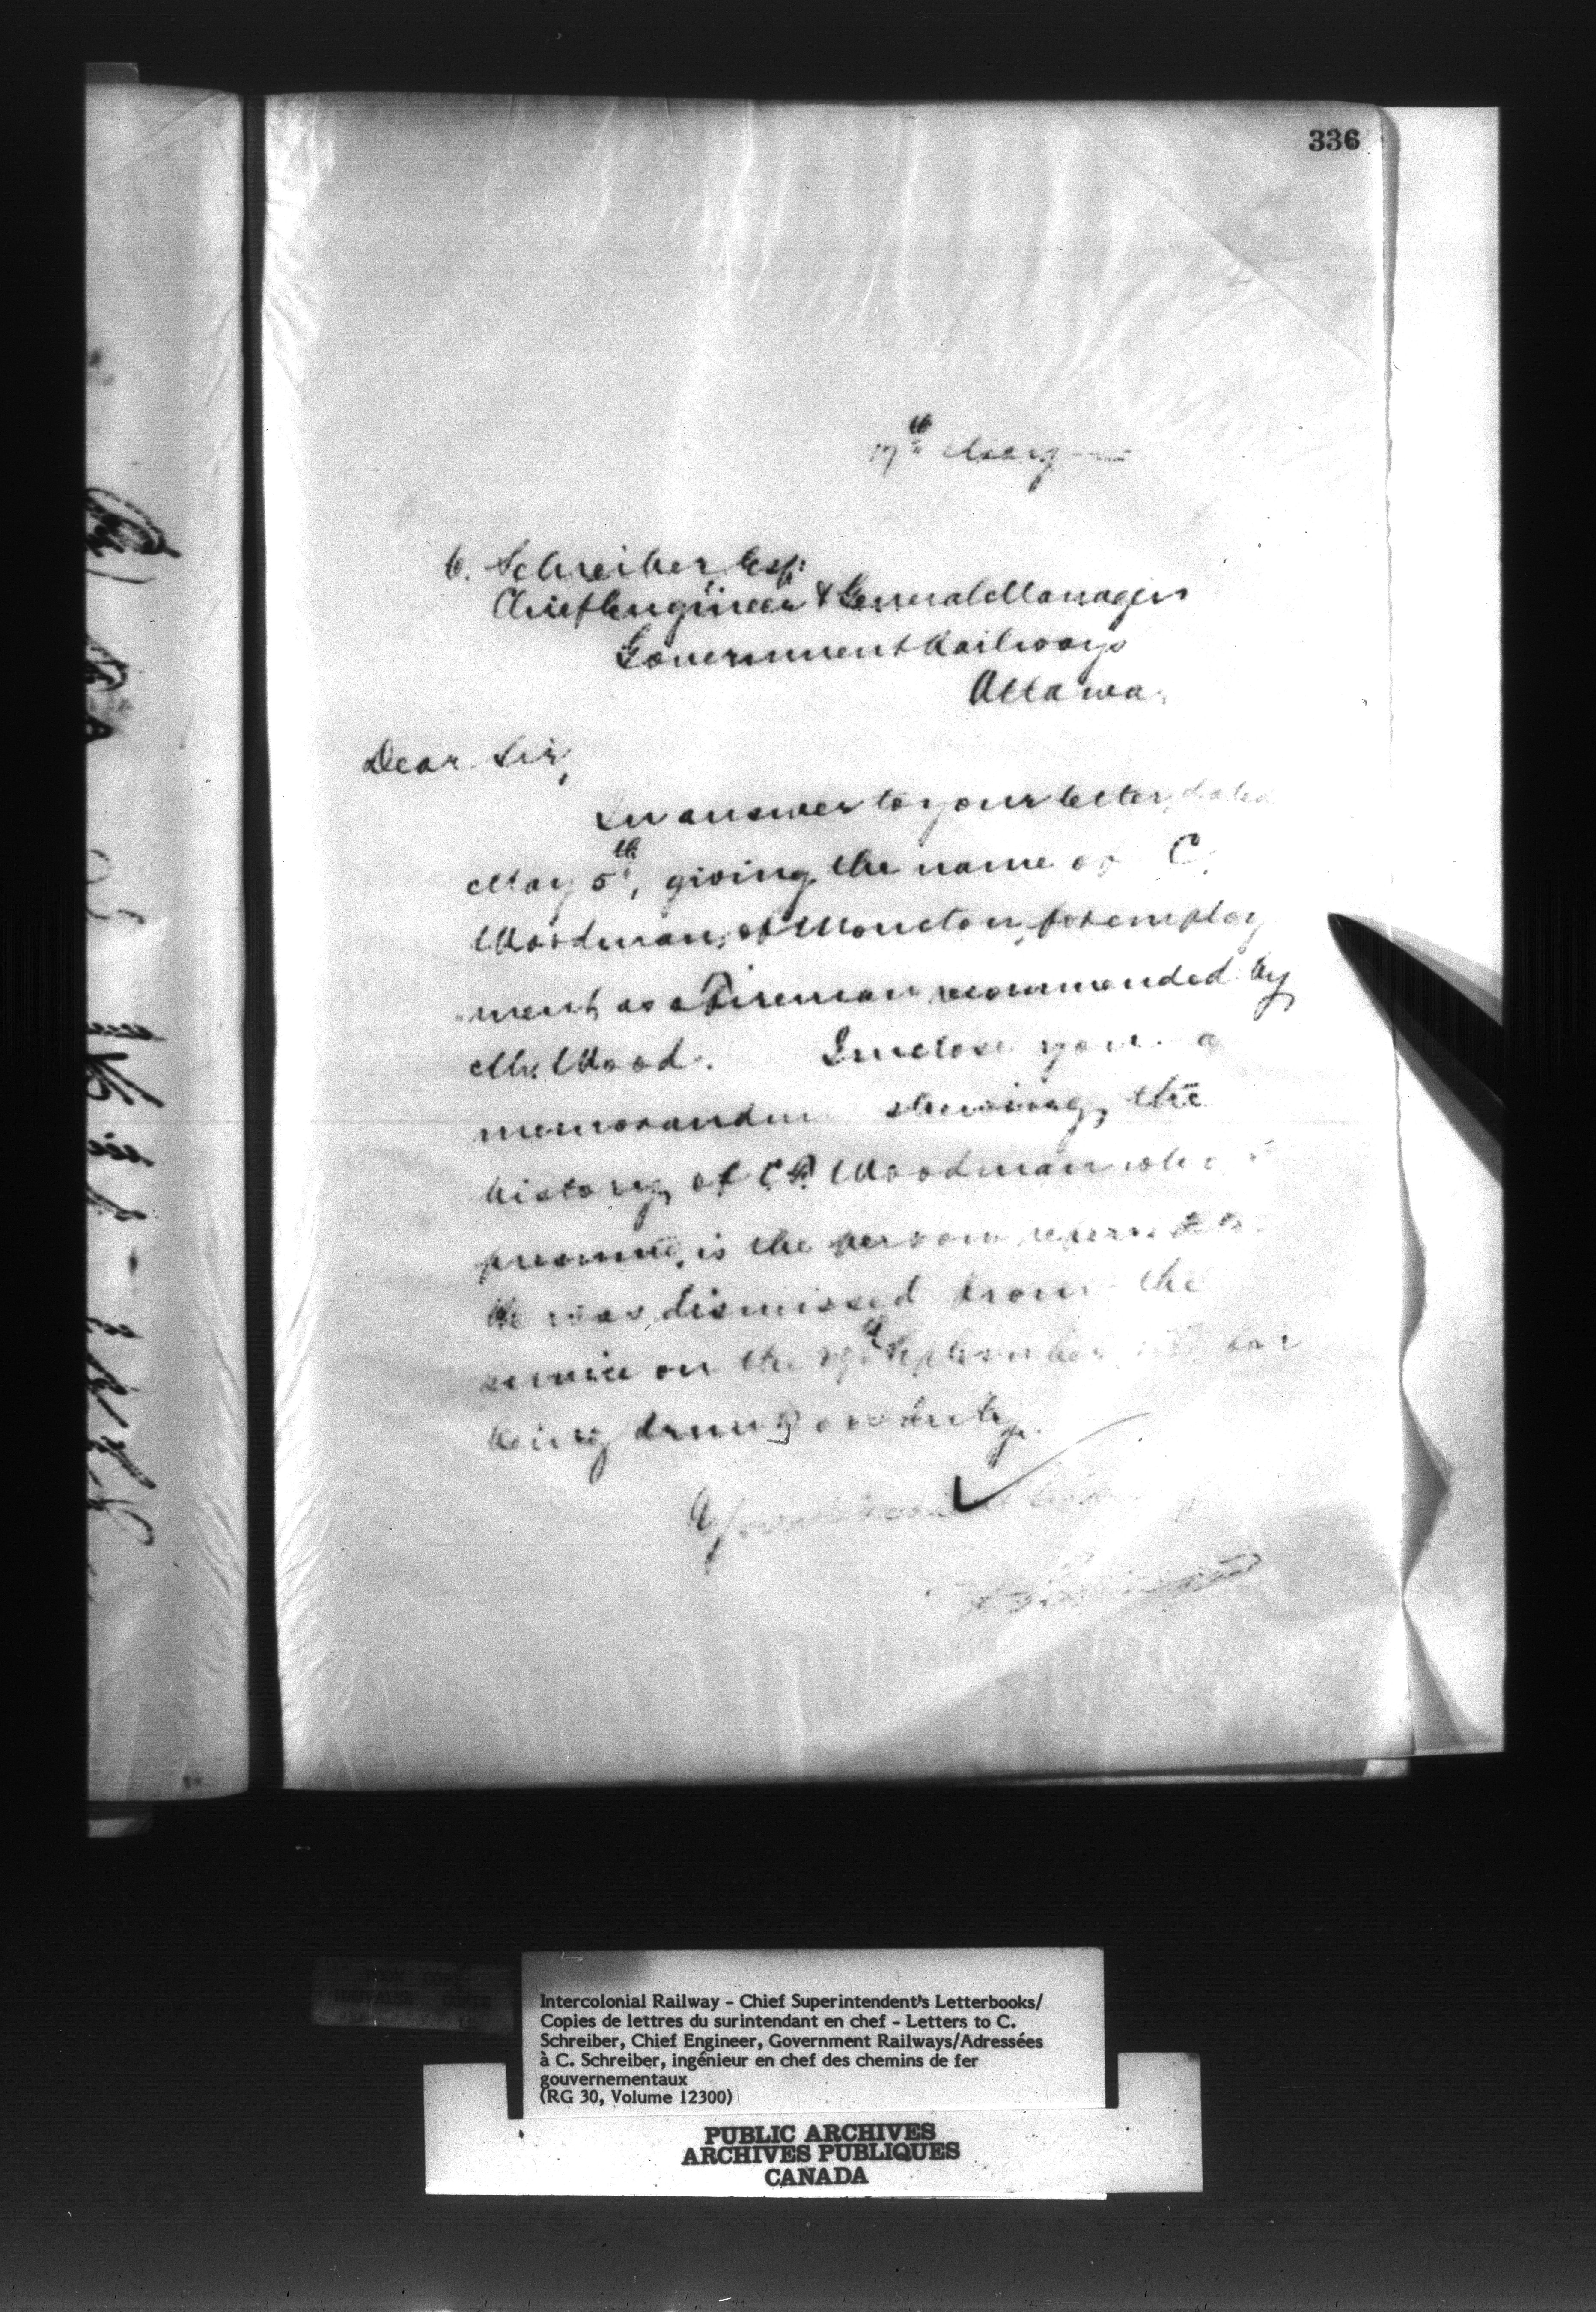 336
17th May
C. Schreiber, Esq:
Chief Engineer & General Manager
Government Railways
Ottawa.
Dear Sir,
In answer to your letter, dated
May 5th, giving the name of C.
Woodman, of Moncton, for employ
ment, as a Fireman recommended by
Mr. Wood. I inclose you a
memorandum shewing, the
history, of C. Woodman who I
presume, is the person referred to.
He was dismissed from the
service on the September for
being drunk on duty.
Yours
POOR COPY
MAUVAISE COPIE
Intercolonial Railway - Chief Superintendent's Letterbooks/
Copies de lettres du surintendant en chef - Letters to C.
Schreiber, Chief Engineer, Government Railways/Adressées
à C. Schreiber, ingénieur en chef des chemins de fer
gouvernementaux
(RG 30, Volume 12300)
PUBLIC ARCHIVES
ARCHIVES PUBLIQUES
CANADA